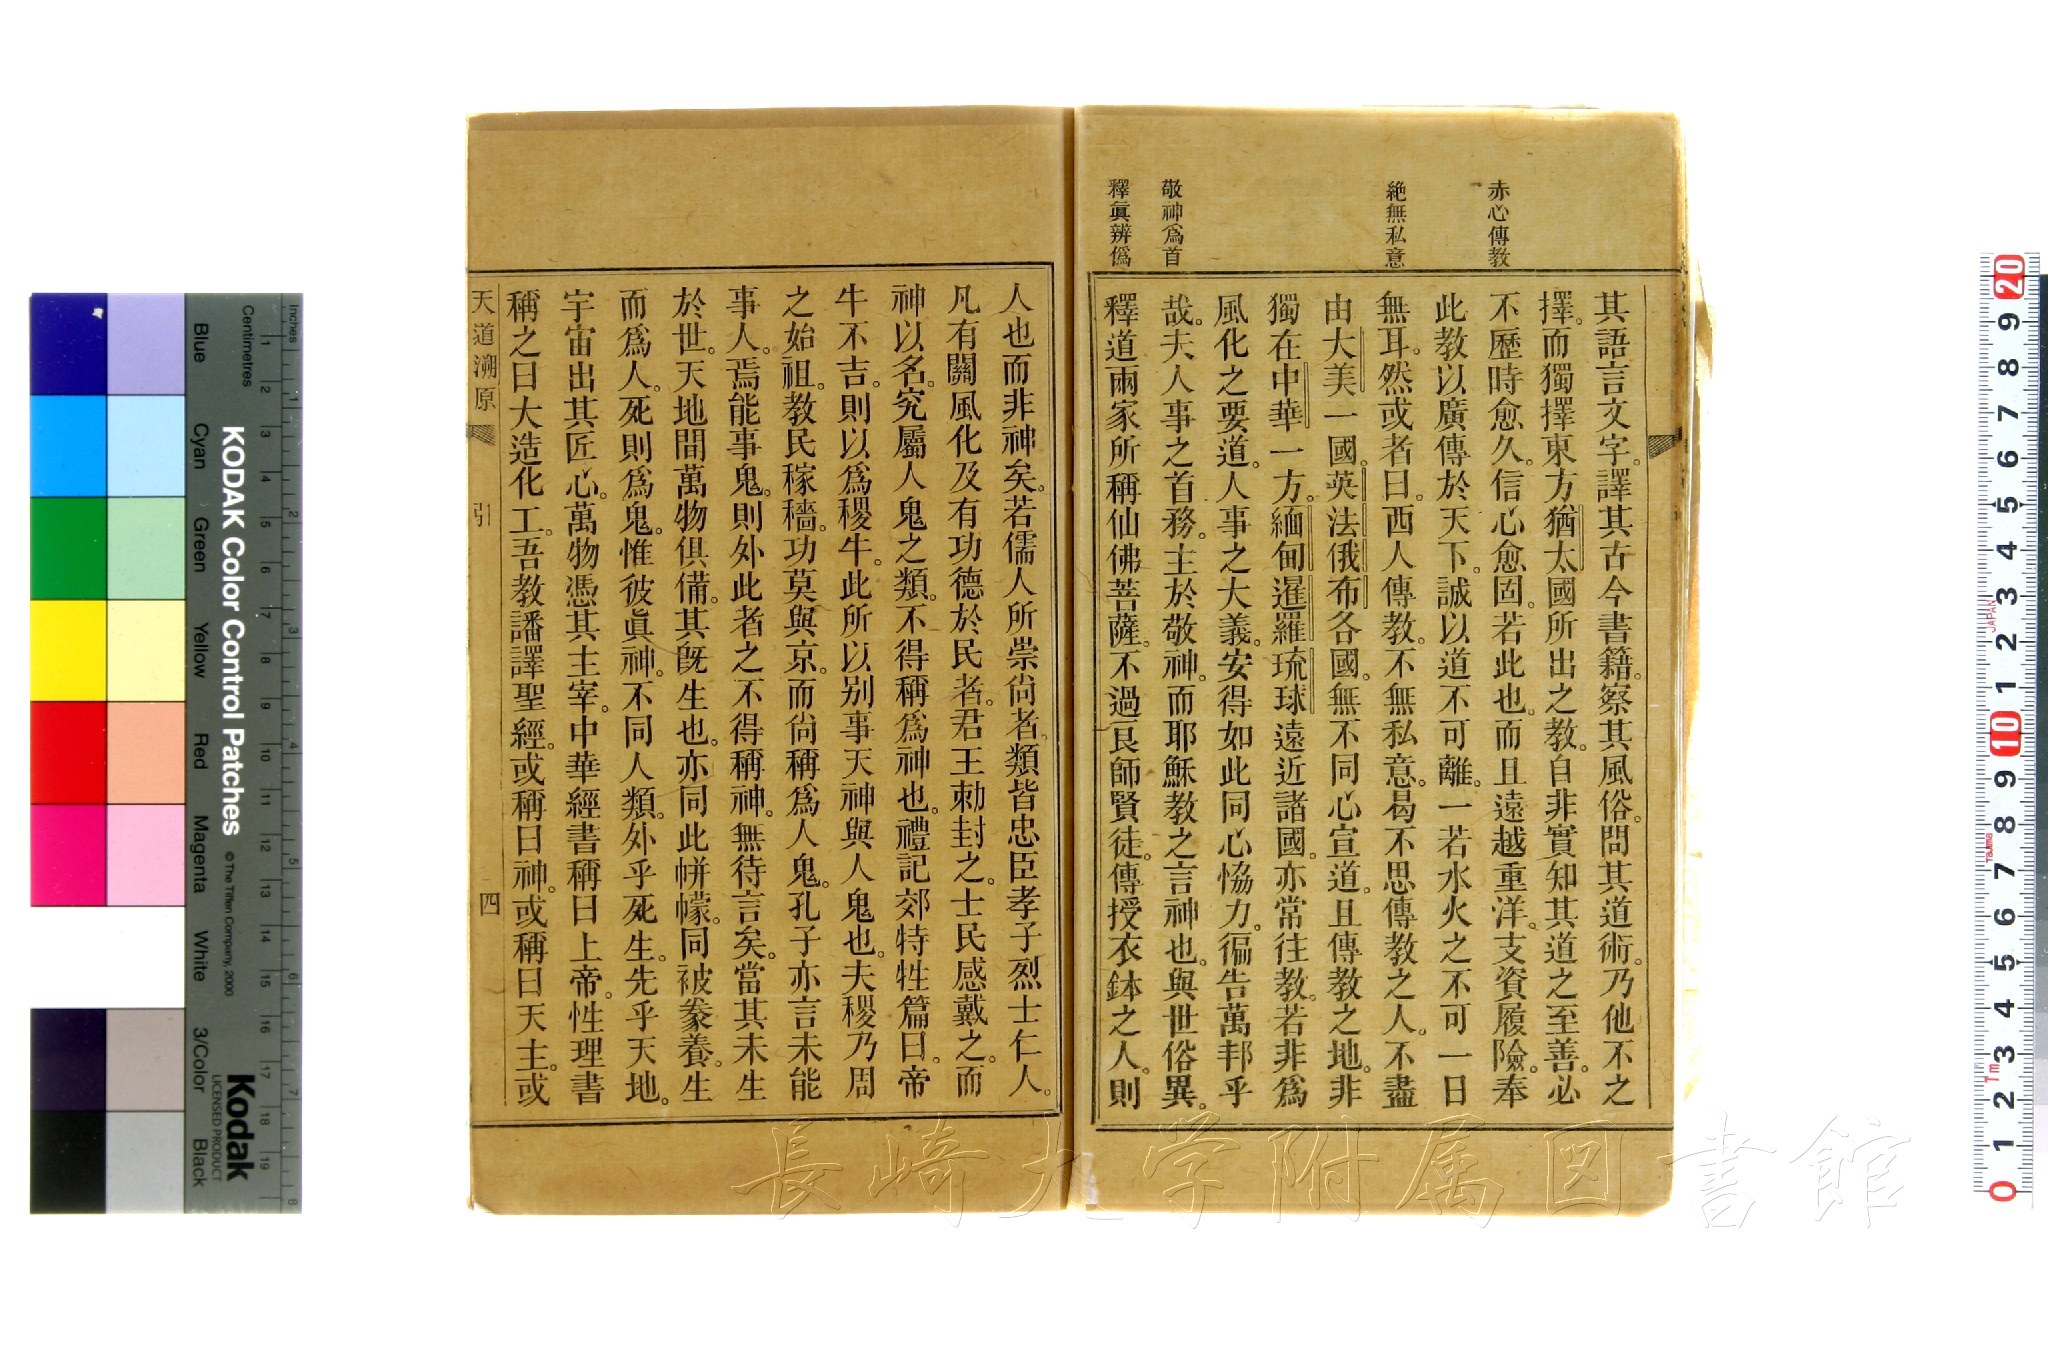 赤心傳教
絶無私意
敬神爲首
釋眞辨僞
其語言文字。譯其古今書籍。察其風俗。問其道術。乃他不之
擇。而獨擇東方猶太國所出之教。自非實知其道之至善。必
不歷時愈久。信心愈固。若此也。而且遠越重洋。支資履險。奉
此教以廣傳於天下。誠以道不可離。一若水火之不可一日
無耳。然或者曰。西人傳教。不無私意。曷不思傳教之人。不盡
由大美一國。英法俄布各國。無不同心宣道。且傳教之地。非
獨在中華一方。緬甸暹羅琉球遠近諸國。亦常往教。若非爲
風化之要道。人事之大義。安得如此同心恊力。徧告萬邦乎
哉。夫人事之首務。主於敬神。而耶穌教之言神也。與世俗異。
釋道兩家所稱仙佛菩薩。不過艮師賢徒。傳授衣鉢之人。則
人也而非神矣。若儒人所崇尙者。類皆忠臣孝子烈士仁人。
凡有關風化及有功德於民者。君王勅封之。士民感戴之。而
神以名。究屬人鬼之類。不得稱爲神也。禮記郊特牲篇曰。帝
牛不吉。則以爲稷牛。此所以别事天神與人鬼也。夫稷乃周
之始祖。教民稼穡。功莫與京。而尙稱爲人鬼。孔子亦言未能
事人。焉能事鬼。則外此者之不得稱神。無待言矣。當其未生
於世。天地間萬物俱備。其旣生也。亦同此帡幪。同被豢養。生
而爲人。死則爲鬼。惟彼眞神。不同人類。外乎死生。先乎天地。
宇宙出其匠心。萬物憑其主宰。中華經書稱曰上帝。性理書
稱之曰大造化工。吾教譒譯聖經。或稱曰神。或稱曰天主。或
天道溯原
引
四
長崎大学附属図書館
KODAK Color Control Patches
© The Tiffen Company, 2000
Kodak
LICENSED PRODUCT
Inches
Centimetres
Blue
Cyan
Green
Yellow
Red
Magenta
White
3/Color
Black